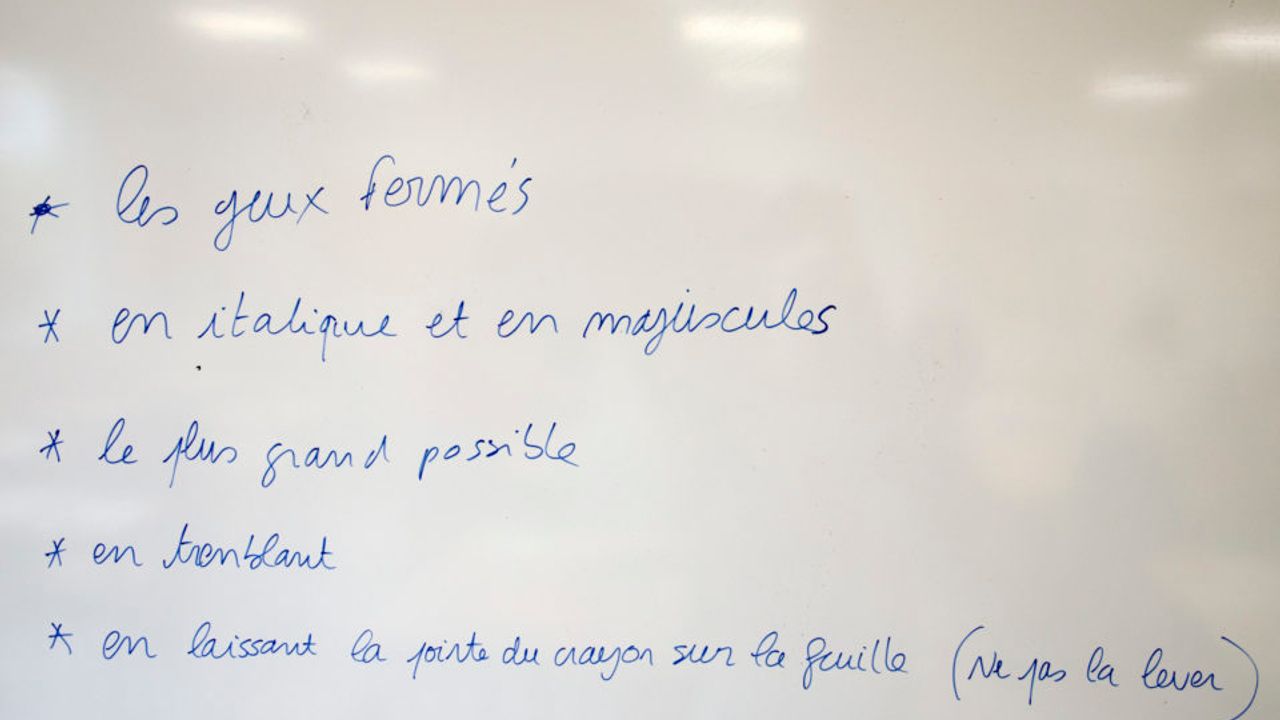 * les yeux fermés
* en italique et en majuscules
* le plus grand possible
* en tremblant
* en laissant la pointe du crayon sur la feuille (Ne pas la lever)